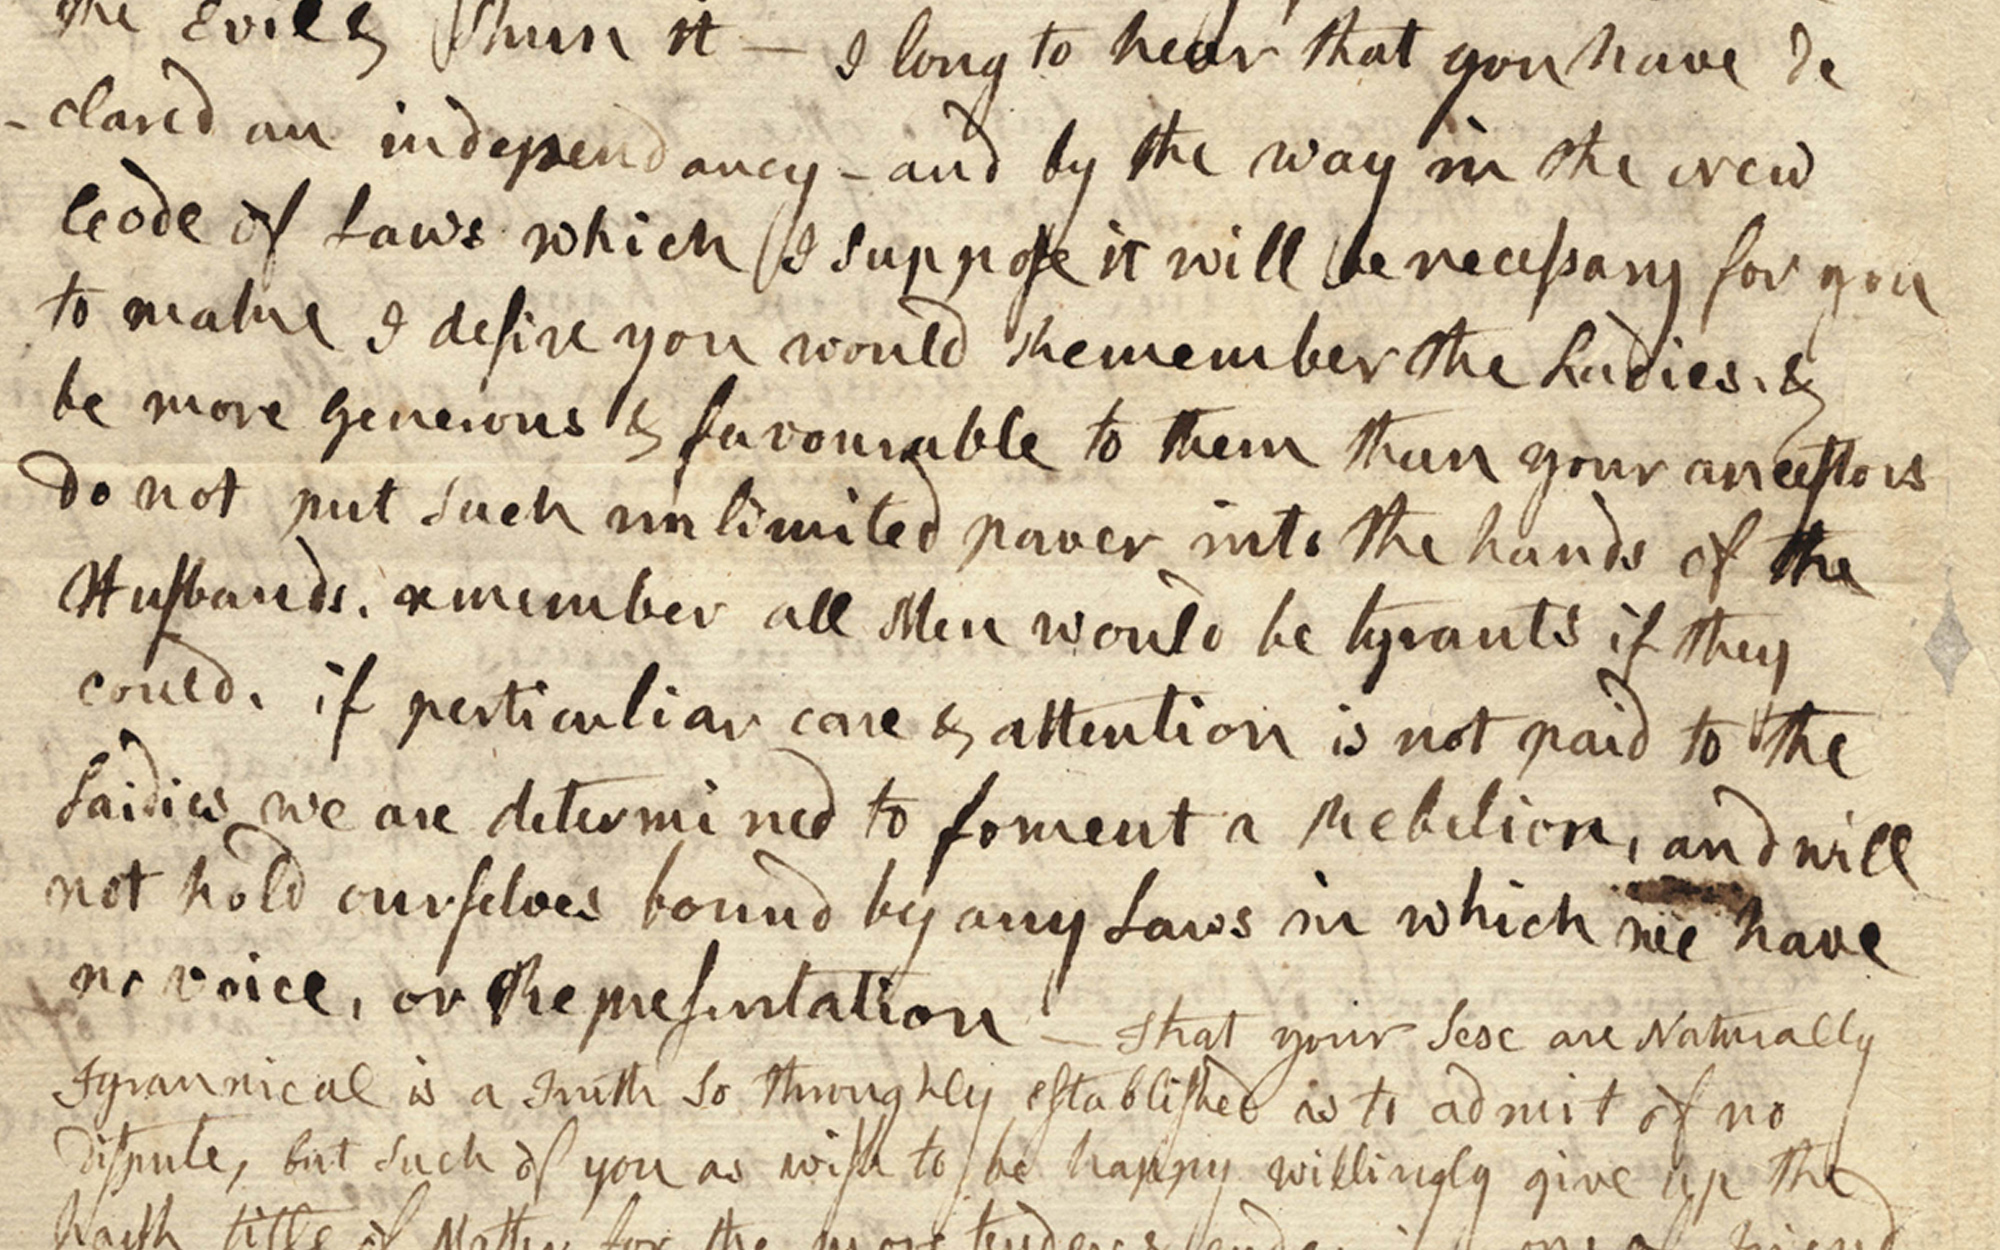 the Evil & Shun it — I long to hear that you have de
-clared an independancy - and by the way in the New
Code of Laws which I suppose it will be necessary for you
to make I desire you would Remember the Ladies, &
be more generous & favourable to them than your ancestors
do not put such unlimited power into the hands of the
Husbands. remember all Men would be tyrants if they
could. if perticuliar care & attention is not paid to the
Laidies we are determined to foment a Rebelion, and will
not hold ourselves bound by any Laws in which we have
no voice, or Representation — That your Sex are Naturally
Tyrannical is a Truth so throughly established as to admit of no
dispute, but such of you as wish to be happy willingly give up the
harsh title of Master for the more tender & endearing one of Friend